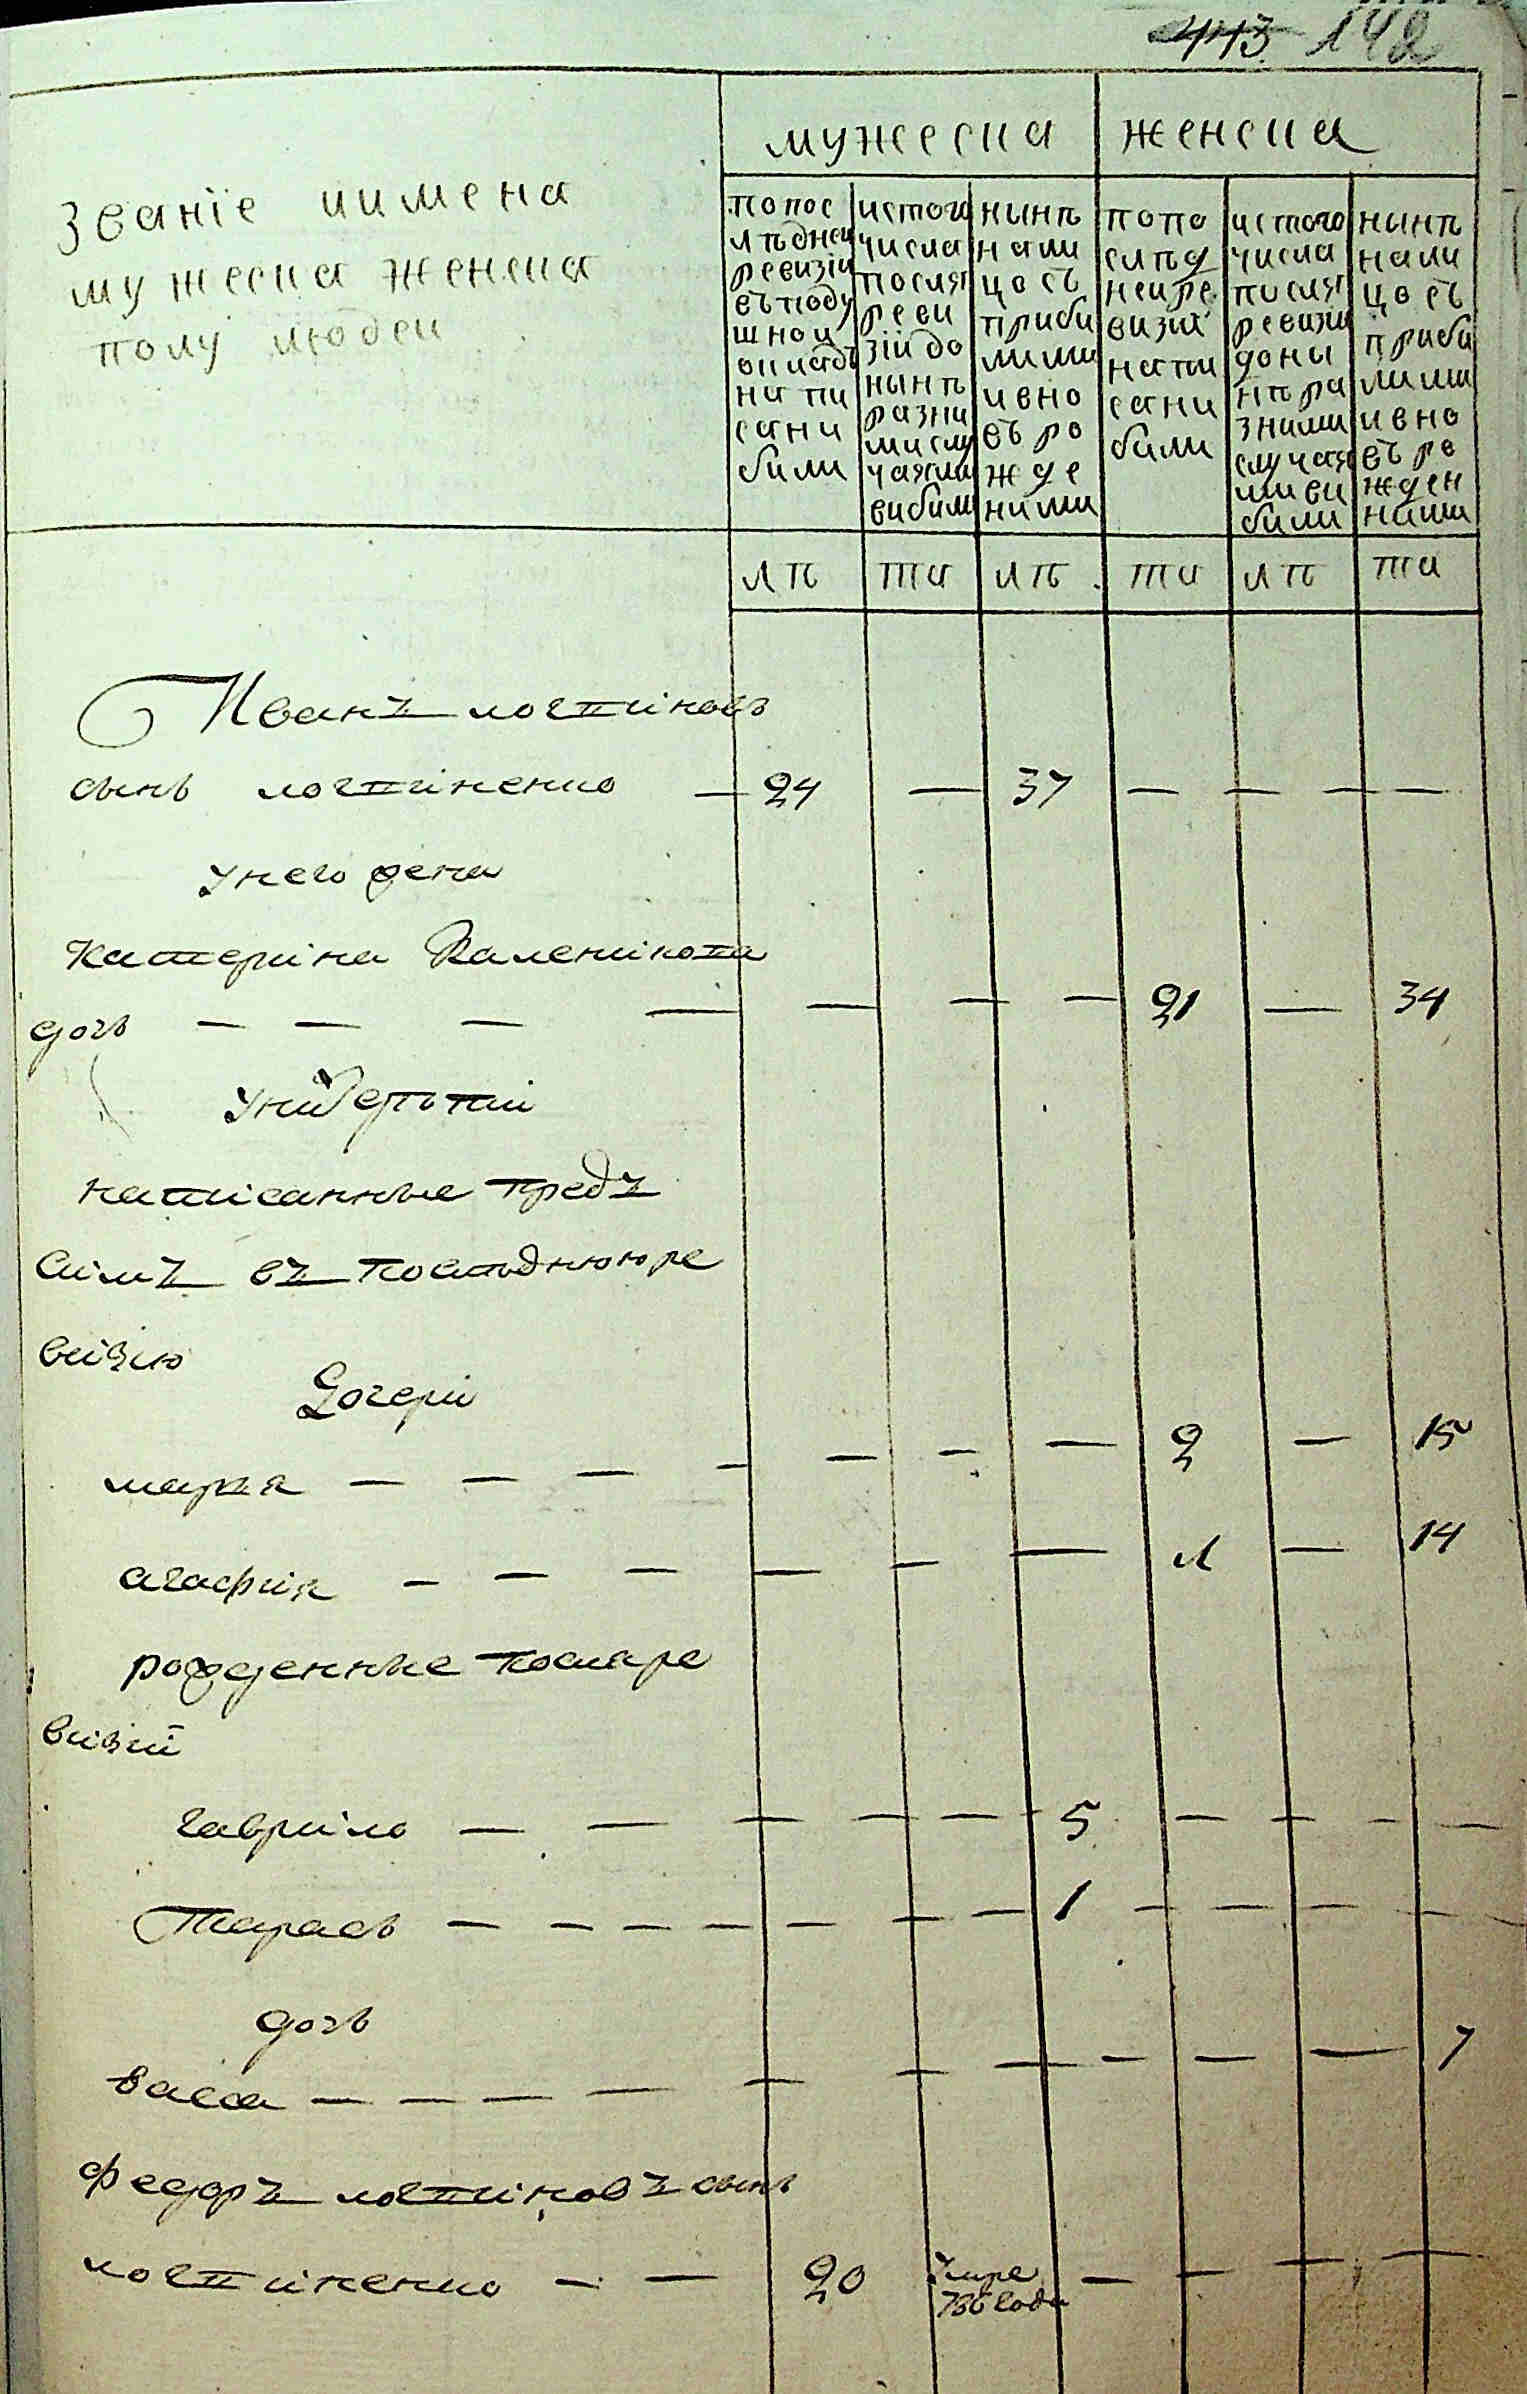 443 142
мужеска женска
званїе иимена
мужеска женска
полу людеи
попос
лѣднеи
ревизіи
въподу
шнои
окладъ
напи
сани
били
истого
числа
посля
реви
зіи до
нынѣ
разни
мислу
чаями
вибили
нынѣ
нали
цосъ
приби
лими
ивно
въ ро
жде
ними
попо
слѣд
неире
визіи
напи
сани
били
истого
числа
посля
ревизіи
доны
нѣра
зними
случая
миви
били
нынѣ
нали
цосъ
приби
лими
ивно
въ ро
жден
ними
лѣ та лѣ та лѣ та
Иванъ логвіновъ
сынъ логвіненко — 24 — 37 — — — —
унего жена
катеріна Каленікова
дочь — — — — — — — 21 — 34
унихъ дѣти
написанные предъ
симъ въ послѣднююре
візію
Дочери
марья — — — — — — — 2 — 15
агафия — — — — — — 1 — 14
рожденные посляре
визіи
гавріло — — — — — 5 — — — —
Тарасъ — — — — — — — 1 — — — — —
дочь
васса — — — — — — — — — — 7
федоръ логвіновъ сынъ
логвіненко — — 20 умре — — — —
786 года